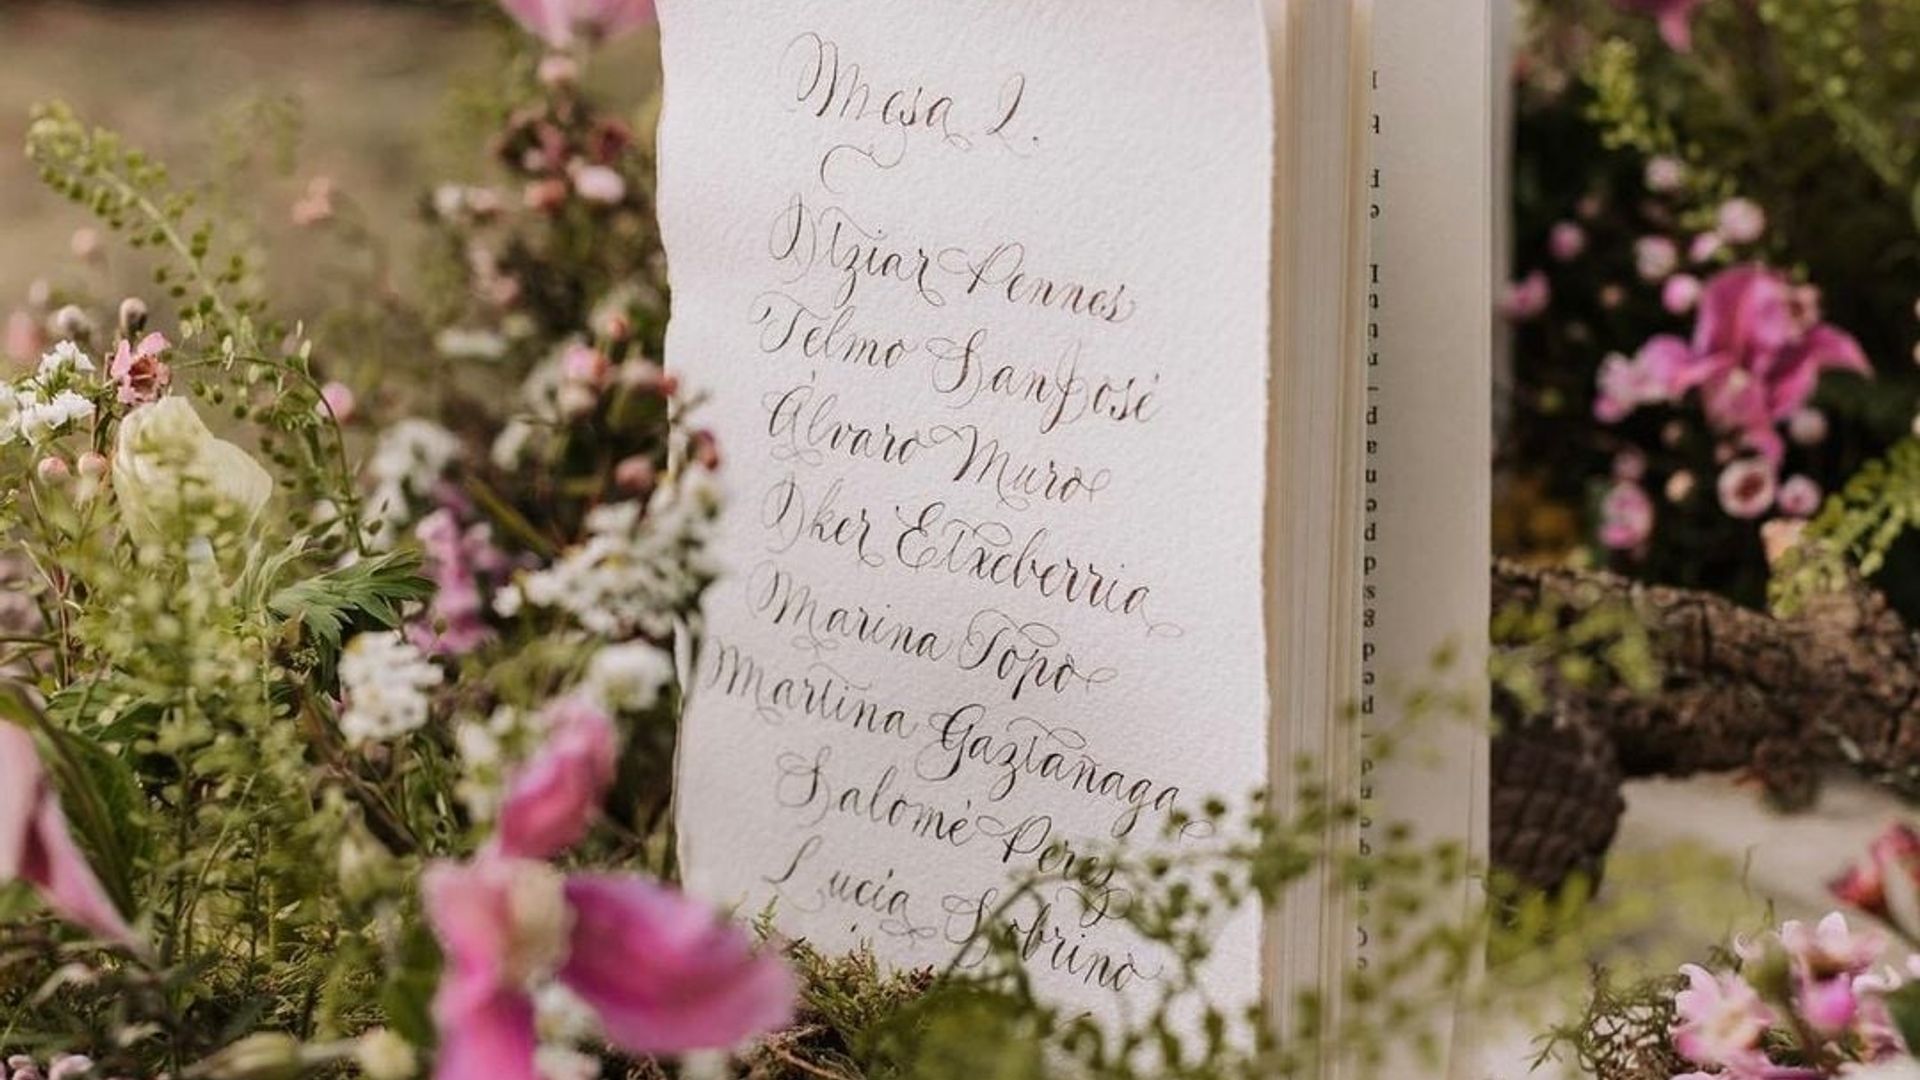 Mesa 2.
Itziar Pennes
Telmo SanJosé
Álvaro Muro
Iker Etxeberria
Marina Topo
Martina Gaztañaga
Salomé Perez
Lucía Sobrino